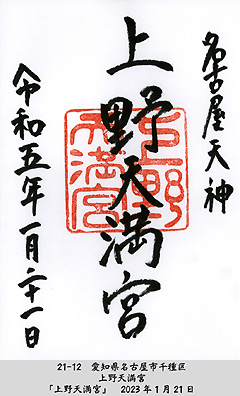 名古屋天神
上野天満宮
令和五年一月二十一日
上野天満宮
21-12 愛知県名古屋市千種区
上野天満宮
「上野天満宮」 2023年1月21日